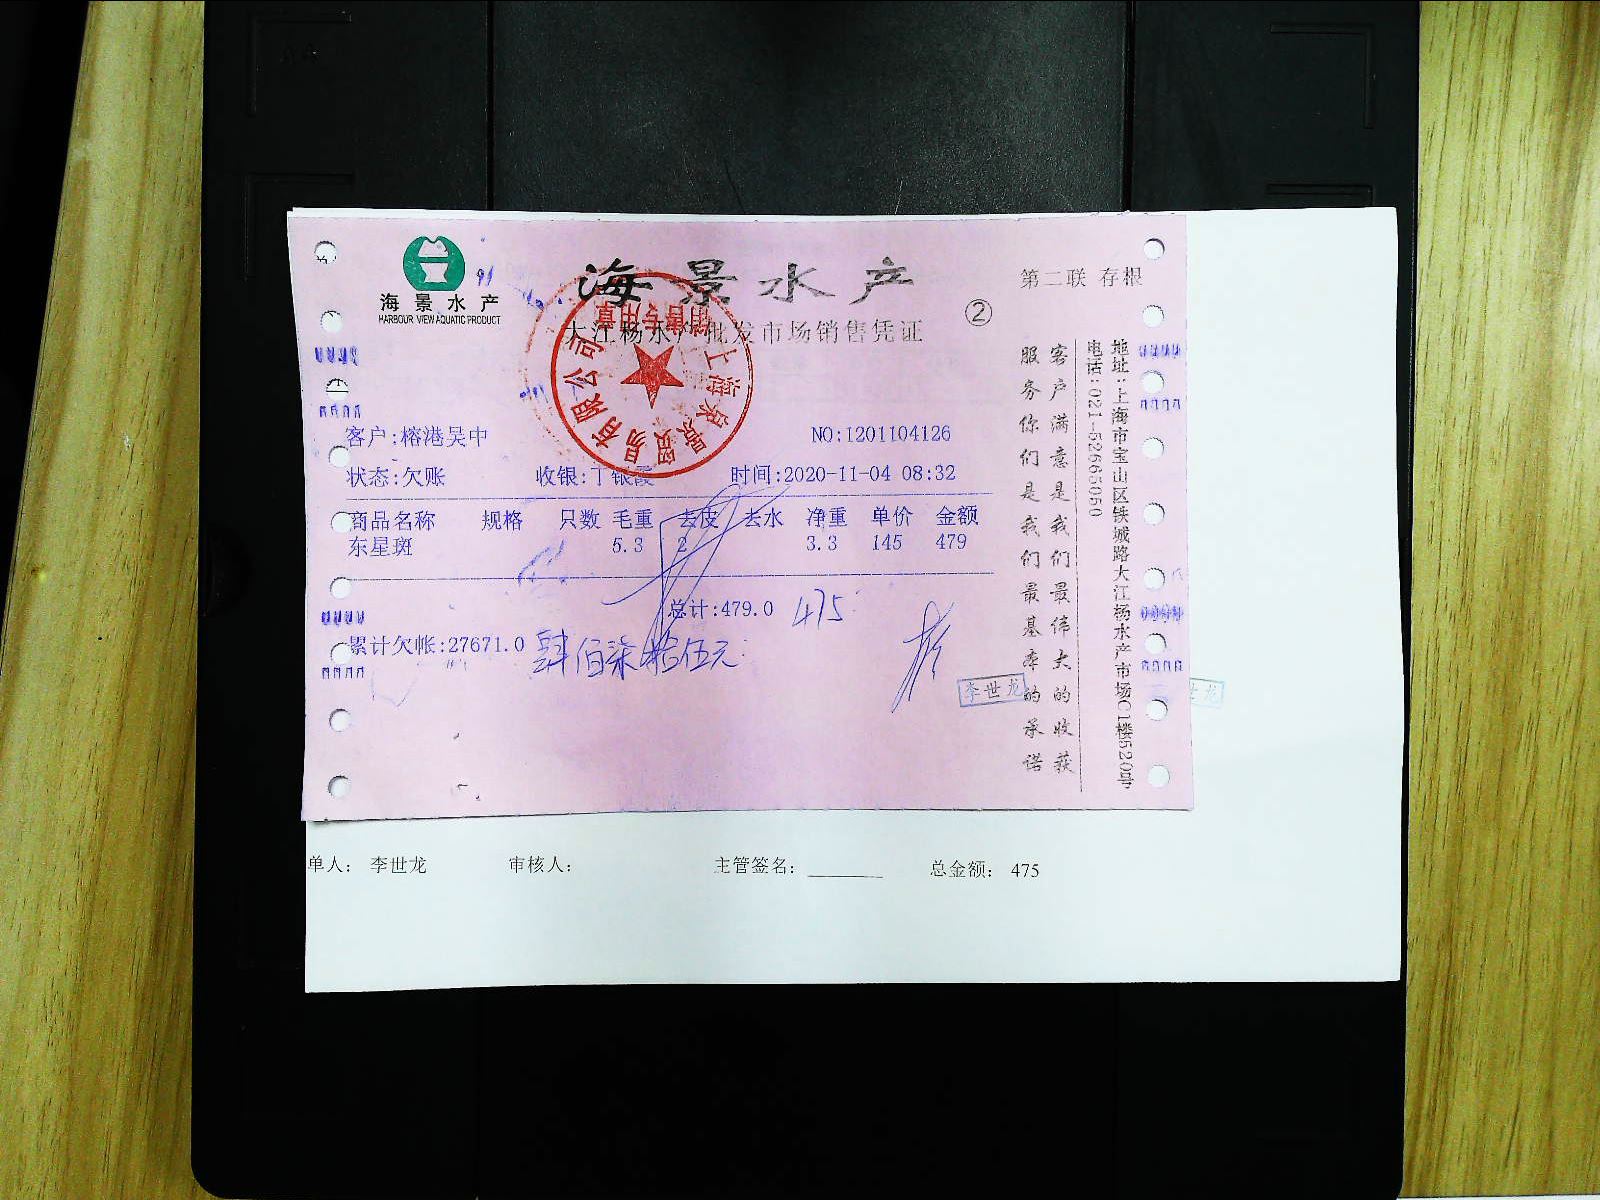 海景水产
HARBOUR VIEW AQUATIC PRODUCT
海景水产
大江杨水产批发市场销售凭证
②
第二联 存根
上海景景贸易有限公司
销售专用章
客户:榕港吴中
NO:1201104126
状态:欠账 收银:丁银霞 时间:2020-11-04 08:32
商品名称 规格 只数 毛重 去皮 去水 净重 单价 金额
东星斑 5.3 2 3.3 145 479
总计:479.0 475
累计欠帐:27671.0 肆佰柒拾伍元
客户满意是我们最伟大的收获
服务你们是我们最基本的承诺
地址:上海市宝山区铁城路大江杨水产市场C1楼520号
电话:021-52665050
李世龙
世龙
单人: 李世龙 审核人: 主管签名: 总金额: 475